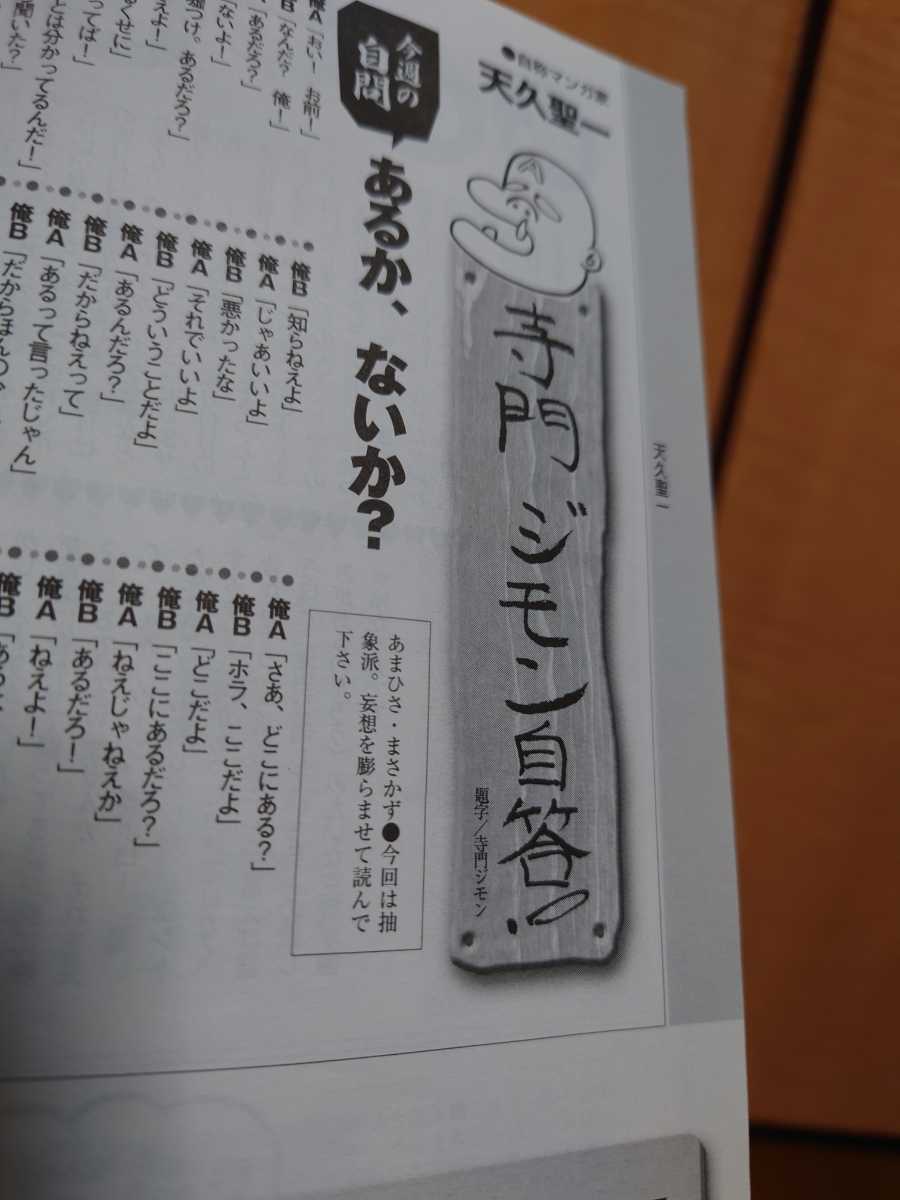 ●自称マンガ家
天久聖一
寺門ジモン自答!!
題字/寺門ジモン
天久聖一
今週の
自問
あるか、ないか?
あまひさ・まさかず●今回は抽
象派。妄想を膨らませて読んで
下さい。
俺A「おい! お前!」
「なんだ? 俺!」
「あるだろ?」
「ないよ!」
嘘つけ。あるだろ?」
えよ!」
くせに
ってば!」
とは分かってるんだ!」
聞いた?」
俺B「知らねえよ」
俺A「じゃあいいよ」
俺B「悪かったな」
俺A「それでいいよ」
俺B「どういうことだよ」
俺A「あるんだろ?」
俺B「だからねえって」
俺A「あるって言ったじゃん」
俺B「だからほんの
俺A「さあ、どこにある?」
俺B「ホラ、ここだよ」
俺A「どこだよ」
俺B「ここにあるだろ?」
俺A「ねえじゃねえか」
俺B「あるだろ!」
俺A「ねえよ!」
俺B